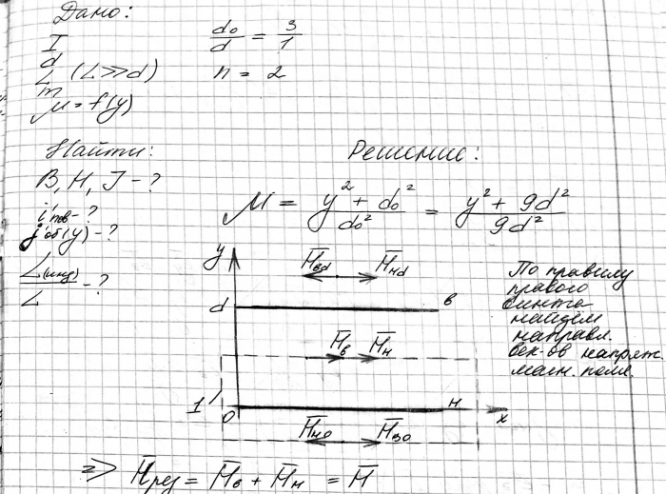 Дано:
I
d
L (L>>d)
m
μ = f(y)
d₀/d = 3/1
n = 2
Найти:
B, H, J - ?
i'пов - ?
j'об(y) - ?
L(инд)/L - ?
Решение:
μ = (y² + d₀²)/d₀² = (y² + 9d²)/9d²
y
H̄вd H̄нd
d в
H̄в H̄н
1'
0 н x
H̄н0 H̄в0
По правилу
правого
винта
найдем
направл.
век-ов напряж.
магн. поля.
=> H̄рез = H̄в + H̄н = H̄